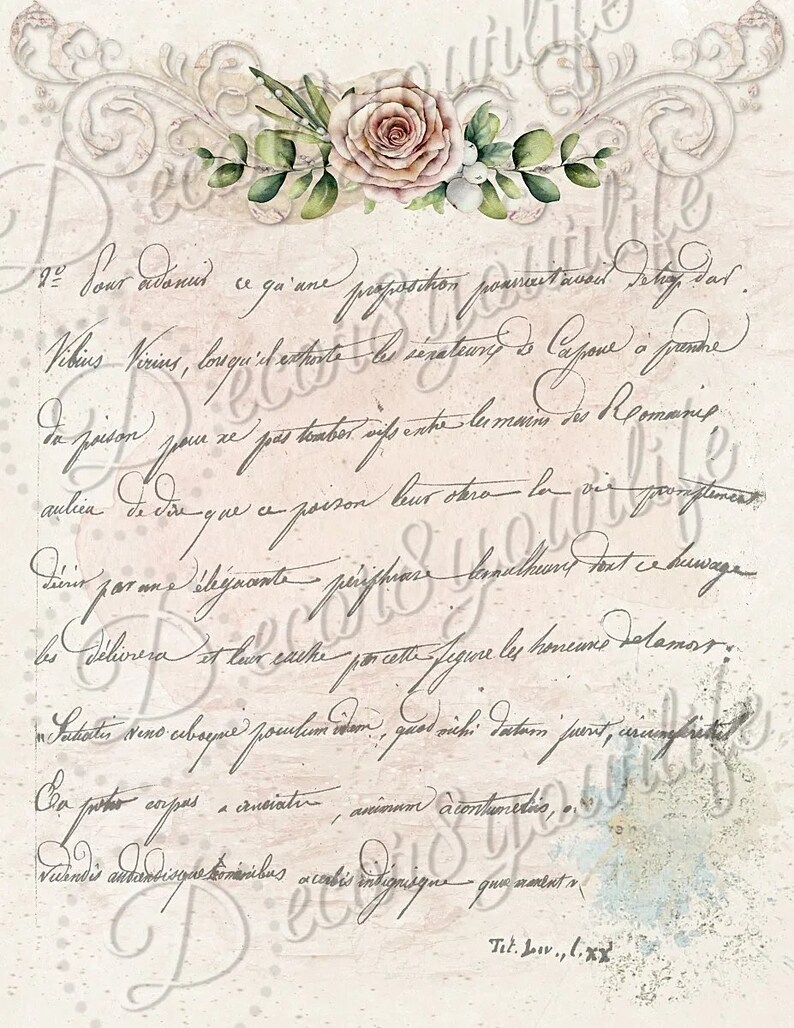 2º Pour adoucir ce qu'une proposition pourrait avoir de trop dur.
Vibius Virius, lorsqu'il exhorte les sénateurs de Capoue à prendre
du poison pour ne pas tomber vifs entre les mains des Romains,
au lieu de dire que ce poison leur otera la vie promptement
décrit par une élégante périphrase les malheurs dont ce breuvage
les délivrera et leur cache par cette figure les horreurs de la mort:
"Satiatis vino ciboque poculum idem, quod mihi datum fuerit, circumferetur
Ea potio corpus a cruciatu, animum à contumeliis,
videndis audiendisque omnibus acerbis indignisque quae manent
Tit. Liv., l. xx
Decor8yourlife
Decor8yourlife
Decor8yourlife
Decor8yourlife